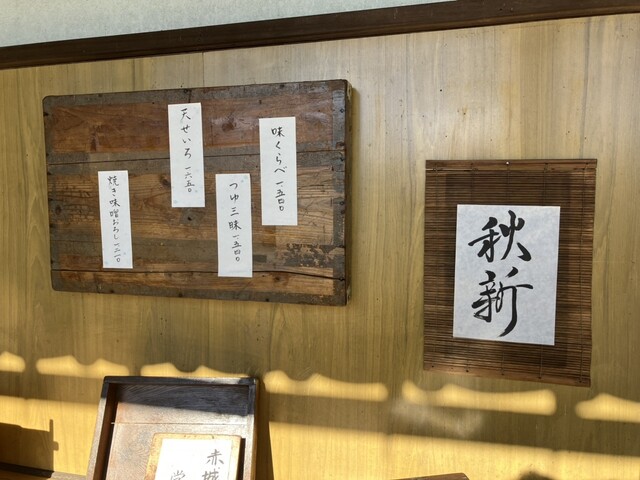 味くらべ 一、五〇〇
つゆ三昧 一、五四〇
天せいろ 一六五〇
焼き味噌おろし 一、二一〇
秋新
赤城